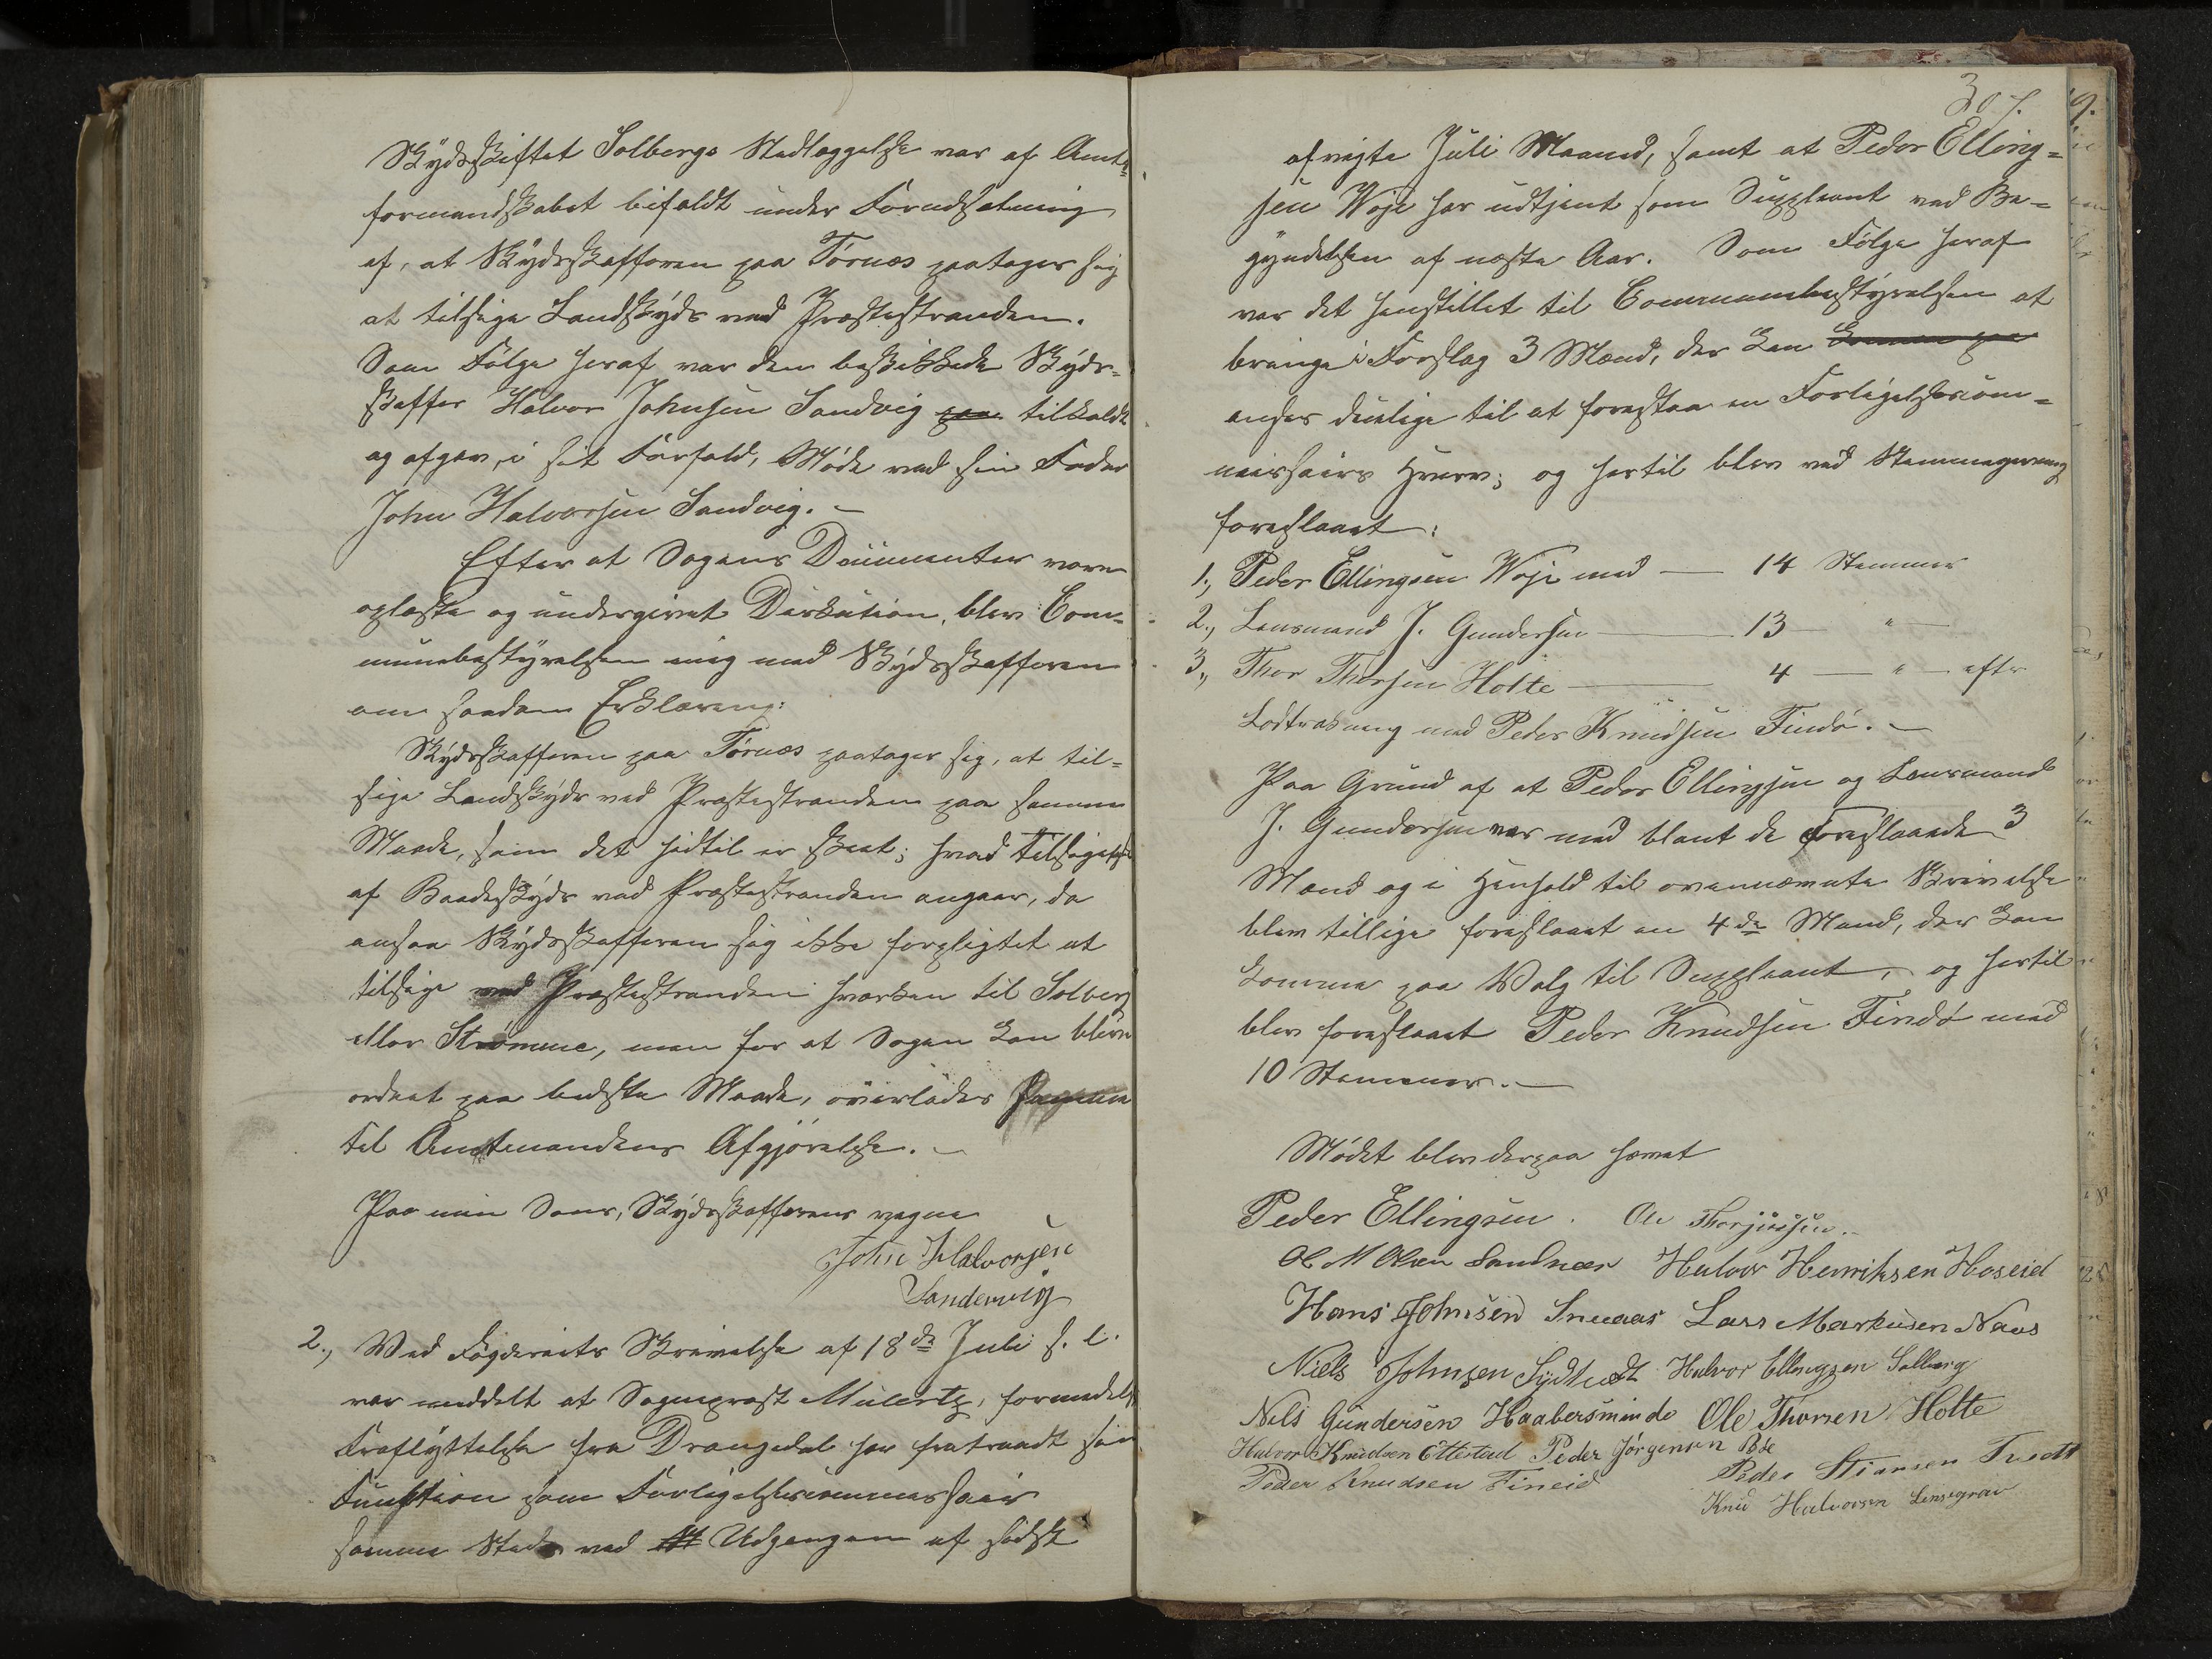 Skydsskiftet Solbergs Nedlæggelse var af Amts-
formandskabet bifaldt under Forudsætning
af, at Skydsskafferen paa Tørnes paatager sig
at tilsige Landskyds ved Præstestranden.
Som Følge heraf var den beskikkede Skyds-
skaffer Halvor Johnsen Sandvig paa tilkaldt
og afgav, i sit Forfald, Møde ved sin Fader
John Halvorsen Sandvig. –
Efter at Sagens Documenter vare
oplæste og undergivet Diskution, blev Com-
munebestyrelsen enig med Skydsskafferen
om saadan Erklæring:
Skydsskafferen paa Tørnes paatager sig, at til-
sige Landskyds ved Præstestranden paa samme
Maade, som det hidtil er skeet; hvad Tilsigelse
af Baadskyds ved Præstestranden angaar, da
ansaa Skydsskafferen sig ikke forpligtet at
tilsige ved Præstestranden hverken til Solberg
eller Strømme, men for at Sagen kan blive
ordnet paa bedste Maade, overlades
til Amtmandens Afgjørelse. –
Paa min Søns, Skydsskafferens vegne
John Halvorsen
Sandervig
2., Ved Fogderiets Skrivelse af 18de Juli s. l.
var meddelt at Sogneprest Mülertz, formedelst
Fraflyttelse fra Drangedal har fratraadt sin
Funktion som Forligelsescommissair
samme Sted ved Udgangen af sidst
307.
afvigte Juli Maaned, samt at Peder Elling-
sen Woje har udtjent som Suppleant ved Be-
gyndelsen af næste Aar. Som Følge heraf
var det henstillet til Communebestyrelsen at
bringe i Forslag 3 Mænd, der kan komme paa
ansees duelige til at forestaa en Forligelsescom-
missairs Hverv; og hertil blev ved Stemmegivning
foreslaaet:
1., Peder Ellingsen Woje med — 14 Stemmer
2., Lensmand J. Gundersen — 13 — " —
3., Thor Thorsen Holte — 4 — " — efter
Lodtrækning med Peder Knudsen Findø. –
Paa Grund af at Peder Ellingsen og Lensmand
J. Gundersen var med blant de foreslaaede 3
Mænd og i Henhold til ovennævnte Skrivelse
blev tillige foreslaaet en 4de Mand, der kan
komme paa Valg til Suppleant, og hertil
blev foreslaaet Peder Knudsen Findø med
10 Stemmer. —
Mødet blev derpaa hævet
Peder Ellingsen. Ole Thorjussen.
Ole M Olsen Sandnæs Halvor Henriksen Hoseid
Hans Johnsen Lars Markusen Naas
Niels Johnsen Halvor Ellingsen Solberg
Nels Gundersen Haabersminde Ole Thorsen Holte
Halvor Knudsen Ettestad Peder Jørgensen Bøe
Peder Knudsen Fineid Peder Stiansen
Knud Halvorsen